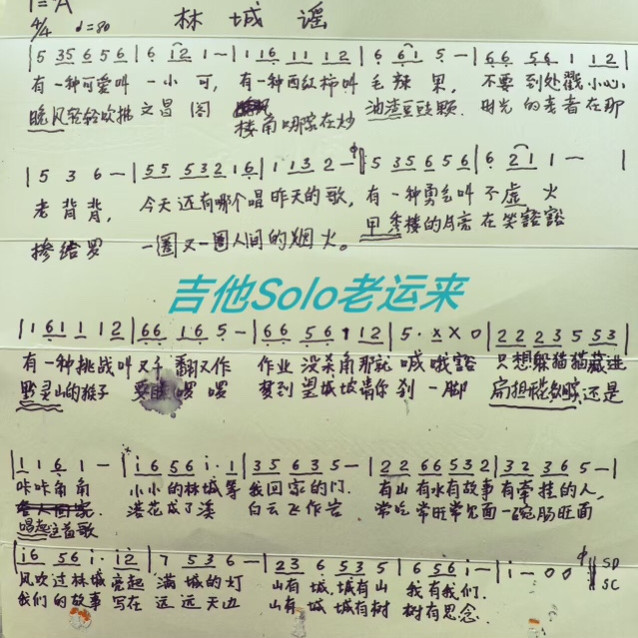 1=A
林城谣
4/4 ♩=80
|5 35 6 5 6|6 12 1 -|1 16 11 12|6 61 5 -|66 56 1 12|
有一种可爱叫 一小可, 有一种西红柿叫 毛辣果, 不要到处戳小心
晚风轻轻吹拂 文昌阁 楼角哪家在炒 油渣豆豉颗. 时光的 者在那
|5 3 6 -|55 5321 6|1 13 2 -|5 35 6 5 6|6 21 1 -|
老背背, 今天还有哪个唱昨天的歌, 有一种勇气叫不虚火
掺给罗 一圈又一圈人间的烟火。 甲秀楼的月亮在笑豁豁
吉他Solo老运来
|1 61 1 12|66 16 5 -|66 56 1 12|5 · x x 0|22 23 5 53|
有一种挑战叫又千翻又作 作业没杀角那就喊哦豁 只想躲猫猫藏进
黔灵山的猴子 啰啰 梦到望城坡请你刹一脚 还是
|1 1 6 1 -|i6 56 i· 1|35 63 5 -|22 66 53 2|32 36 5 -|
咔咔角角 小小的林城等我回家的门. 有山有水有故事有牵挂的人,
唱起这首歌 白云飞作岩 常吃常旺常见面一碗肠旺面
|i6 56 i· i2|7 53 6 -|23 6 53 5|6 56 i -|i - 0 0|
风吹过林城亮起满城的灯 山有城,城有山 我有我们.
我们的故事写在远远天边 山有城 城有树 树有思念.